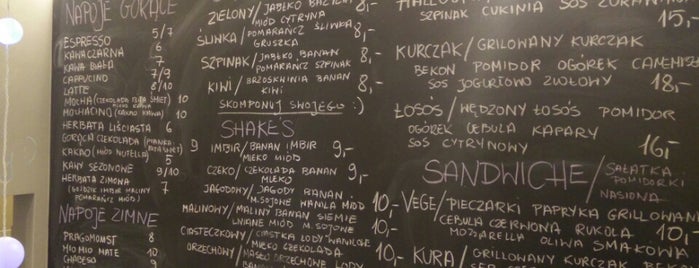 NAPOJE GORĄCE
ESPRESSO 5/7
KAWA CZARNA 6
KAWA BIAŁA 7
CAPPUCINO 7/9
LATTE 8/10
MOCHACINO (KAKAO KAWA) 10
HERBATA LIŚCIASTA 6
GORĄCA CZEKOLADA 9
KAKAO (MIÓD NUTELLA) 5
KAWY SEZONOWE 9/10
HERBATA ZIMOWA 7
(GOŹDZIK IMBIR MALINY
POMARAŃCZ MIÓD)
NAPOJE ZIMNE
PRAGOMOST 8
MIO MIO MATE 10
CHABESO 9
ZIELONY/JABŁKO
MIÓD CYTRYNA 8,-
ŚLIWKA/POMARAŃCZ ŚLIWKA
GRUSZKA 8,-
SZPINAK/JABŁKO BANAN
POMARAŃCZ MIÓD 8,-
KIWI/BRZOSKWINIA BANAN
KIWI 8,-
SKOMPONUJ SWOJEGO :)
SHAKE'S
IMBIR/BANAN IMBIR
MLEKO MIÓD 9,-
CZEKO/CZEKOLADA BANAN
MLEKO 9,-
JAGODOWY/JAGODY BANAN
M.SOJOWE WANILIA MIÓD 10,-
MALINOWY/MALINY BANAN SIEMIE
LNIANE MIÓD M.SOJOWE 10,-
CIASTECZKOWY/CIASTKA LODY WANILIOWE
MLEKO CZEKOLADA 10,-
ORZECHOWY/MASŁO ORZECHOWE LODY
SZPINAK CUKINIA SOS 15,-
KURCZAK/GRILOWANY KURCZAK
BEKON POMIDOR OGÓREK CAMEMBERT
SOS JOGURTOWO ZIOŁOWY 18,-
ŁOSOŚ/WĘDZONY ŁOSOŚ POMIDOR
OGÓREK CEBULA KAPARY
SOS CYTRYNOWY 16,-
SANDWICHE/SAŁATKA
POMIDORKI
NASIONA
VEGE/PIECZARKI PAPRYKA GRILLOWANA
CEBULA CZERWONA RUKOLA 10,-
MOZZARELLA OLIWA SMAKOWA
KURA/GRILLOWANY KURCZAK